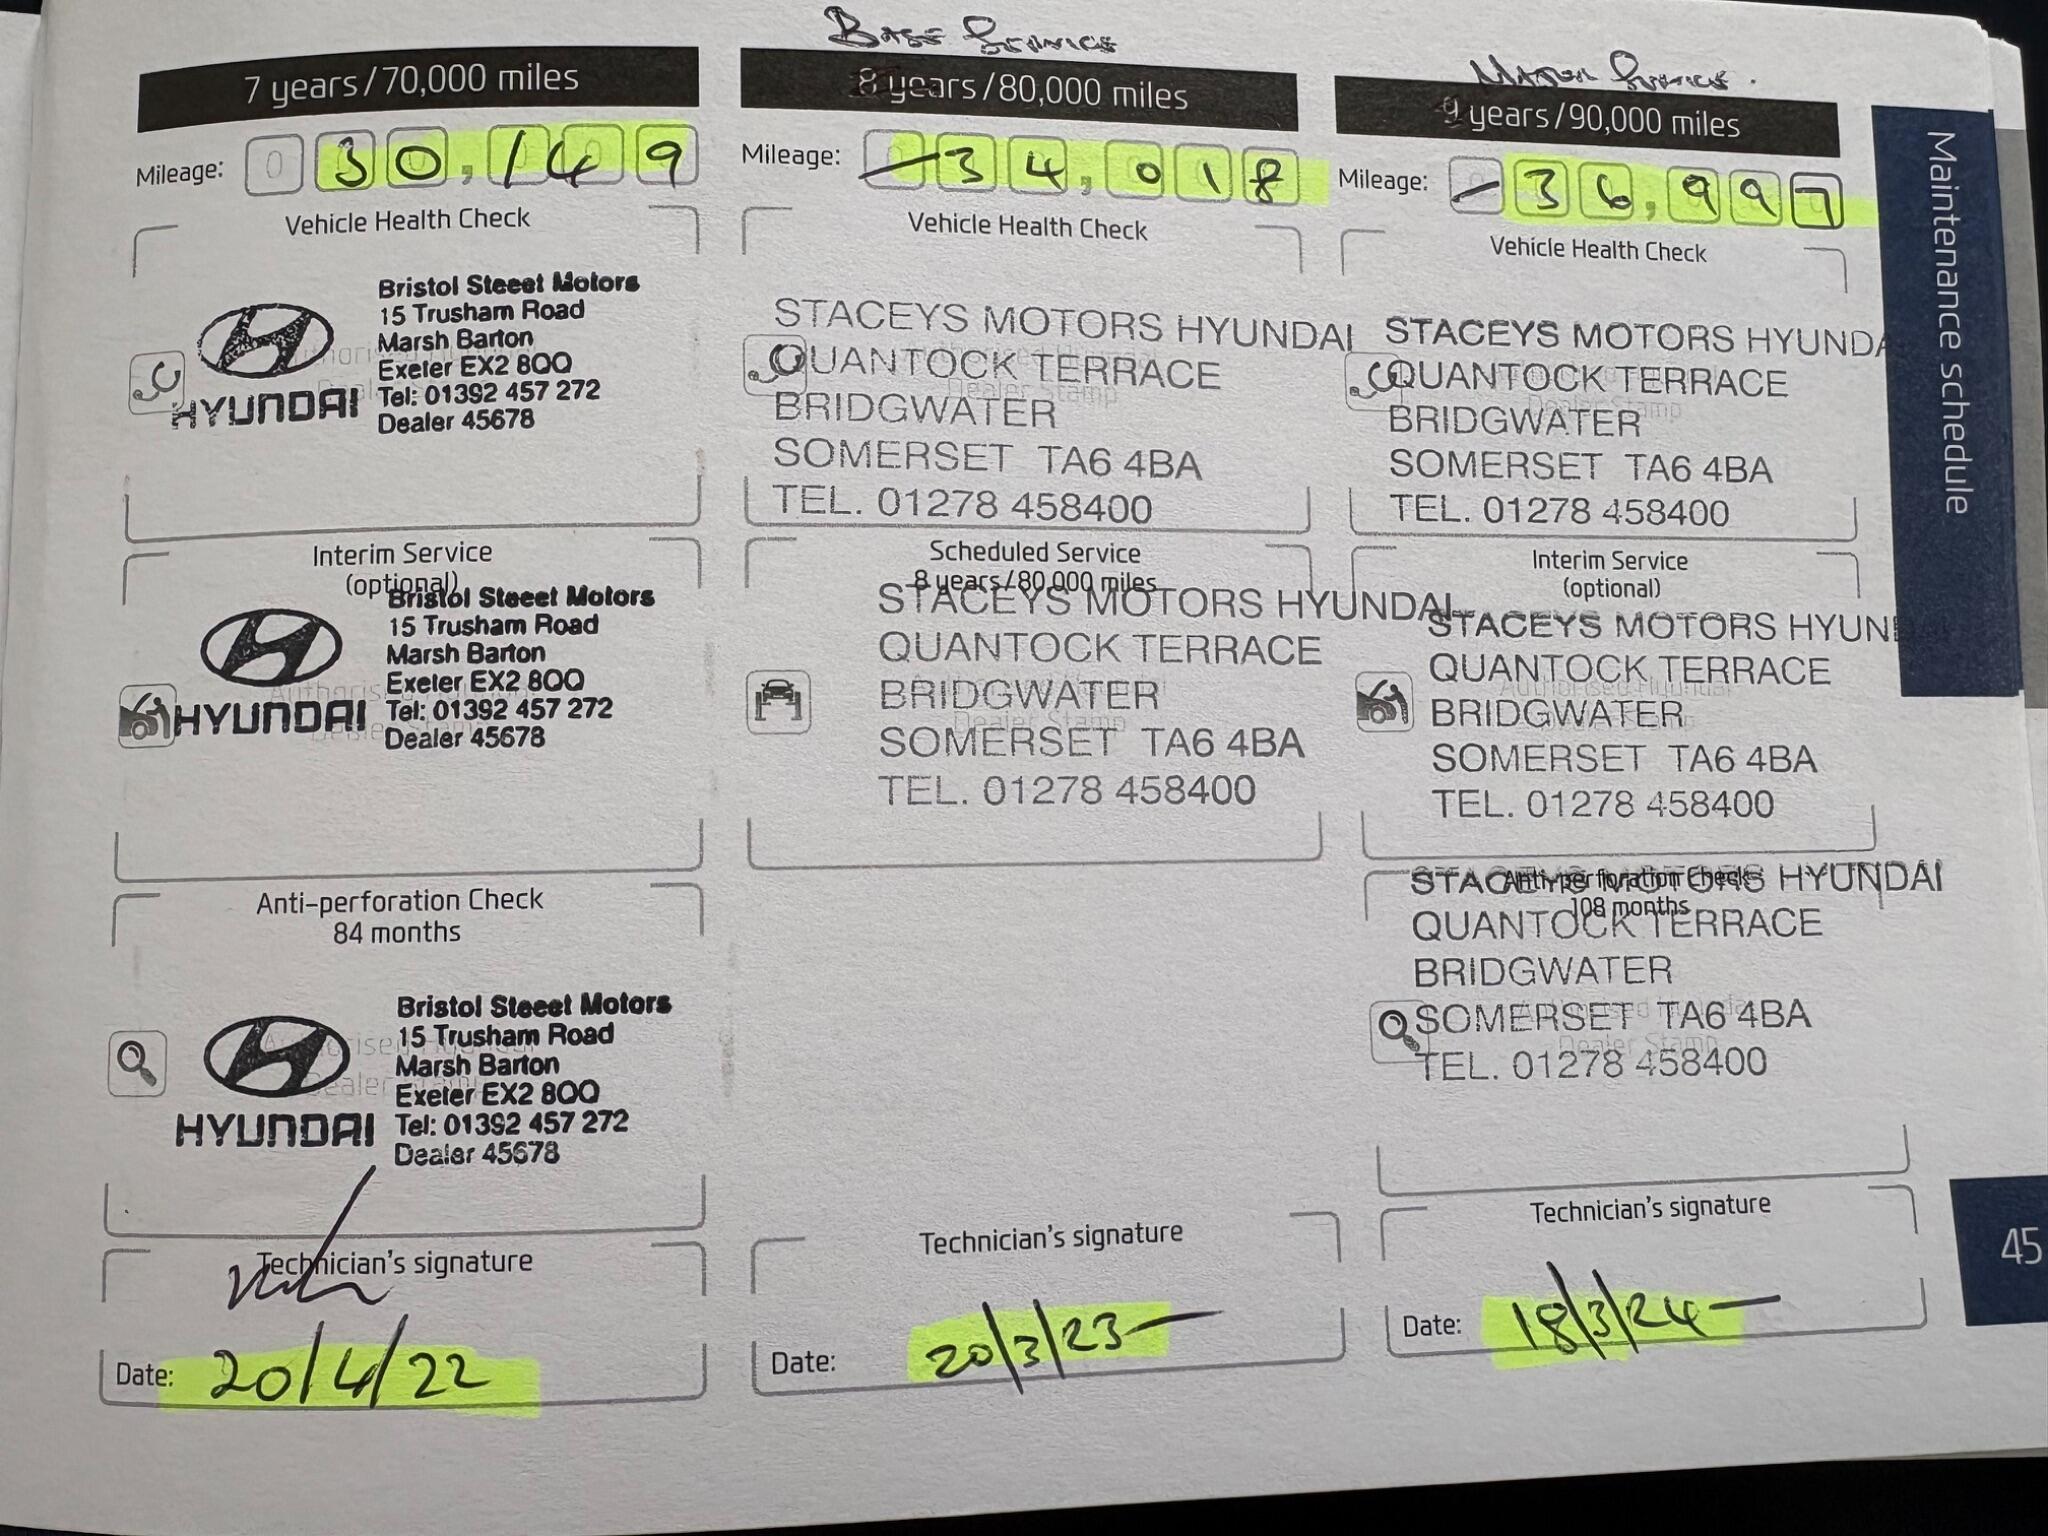 7 years/70,000 miles
Mileage: 30,149
Vehicle Health Check
HYUNDAI
Bristol Steeet Motors
15 Trusham Road
Marsh Barton
Exeter EX2 8QQ
Tel: 01392 457 272
Dealer 45678
Interim Service
(optional)
HYUNDAI
Bristol Steeet Motors
15 Trusham Road
Marsh Barton
Exeter EX2 8QQ
Tel: 01392 457 272
Dealer 45678
Anti-perforation Check
84 months
HYUNDAI
Bristol Steeet Motors
15 Trusham Road
Marsh Barton
Exeter EX2 8QQ
Tel: 01392 457 272
Dealer 45678
Technician's signature
Date: 20/4/22
Base Service
8 years/80,000 miles
Mileage: 34,018
Vehicle Health Check
STACEYS MOTORS HYUNDAI
QUANTOCK TERRACE
BRIDGWATER
SOMERSET TA6 4BA
TEL. 01278 458400
Scheduled Service
8 years/80,000 miles
STACEYS MOTORS HYUNDAI
QUANTOCK TERRACE
BRIDGWATER
SOMERSET TA6 4BA
TEL. 01278 458400
Technician's signature
Date: 20/3/23
Major Service.
9 years/90,000 miles
Mileage: 36,997
Vehicle Health Check
STACEYS MOTORS HYUNDA
QUANTOCK TERRACE
BRIDGWATER
SOMERSET TA6 4BA
TEL. 01278 458400
Interim Service
(optional)
STACEYS MOTORS HYUN
QUANTOCK TERRACE
BRIDGWATER
SOMERSET TA6 4BA
TEL. 01278 458400
Anti-perforation Check
108 months
STACEYS MOTORS HYUNDAI
QUANTOCK TERRACE
BRIDGWATER
SOMERSET TA6 4BA
TEL. 01278 458400
Technician's signature
Date: 18/3/24
Maintenance schedule
45